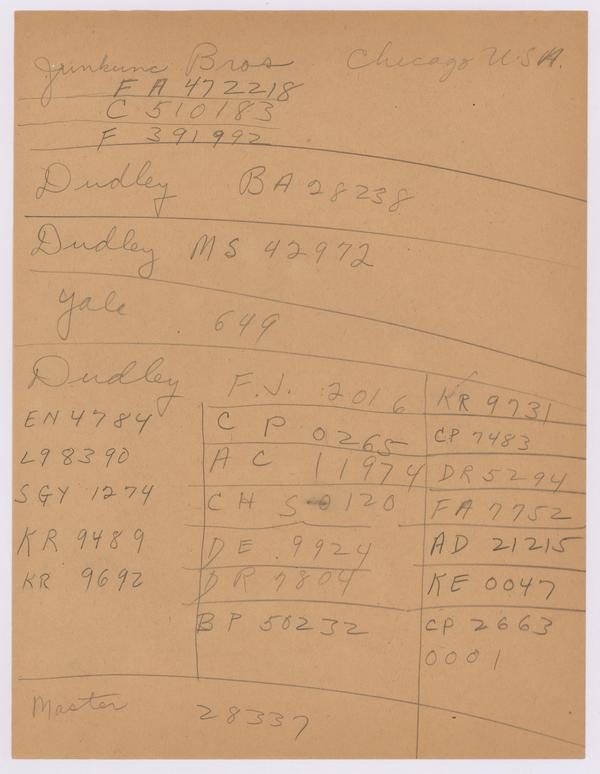 Junkunc Bros Chicago U.S.A.
F A 472218
C 510183
F 391992
Dudley BA 28238
Dudley MS 42972
Yale 649
Dudley F.J. 2016
EN 4784
L98390
SGY 1274
KR 9489
KR 9692
C P 0265
A C 11974
C H S 0120
DE 9924
DR 7804
BP 50232
KR 9731
CP 7483
DR 5294
FA 7752
AD 21215
KE 0047
CP 2663
0001
Master 28337